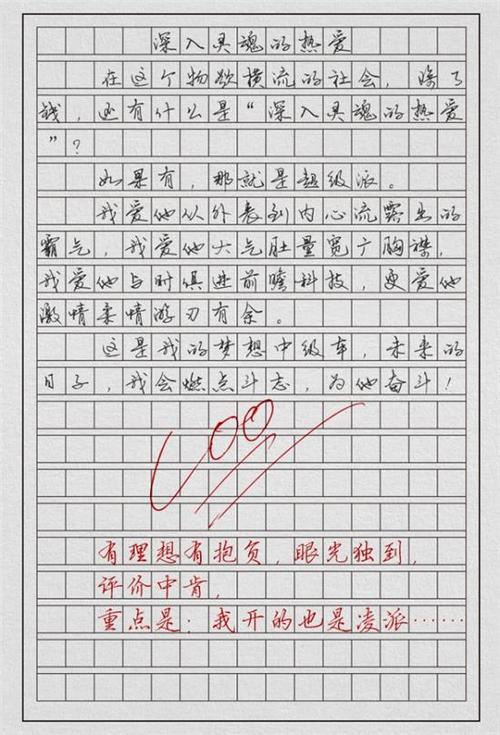 深入灵魂的热爱
在这个物欲横流的社会，除了
钱，还有什么是“深入灵魂的热爱
”？
如果有，那就是超级派。
我爱他从外表到内心流露出的
霸气，我爱他大气肚量宽广胸襟，
我爱他与时俱进前瞻科技，更爱他
激情柔情游刃有余。
这是我的梦想中级车，未来的
日子，我会燃点斗志，为他奋斗！
100
有理想有抱负，眼光独到，
评价中肯，
重点是：我开的也是凌派……